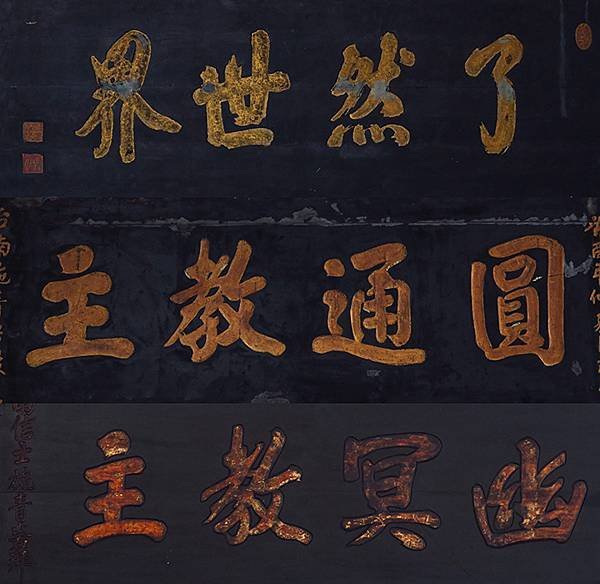 了然世界
圓通教主
幽冥教主